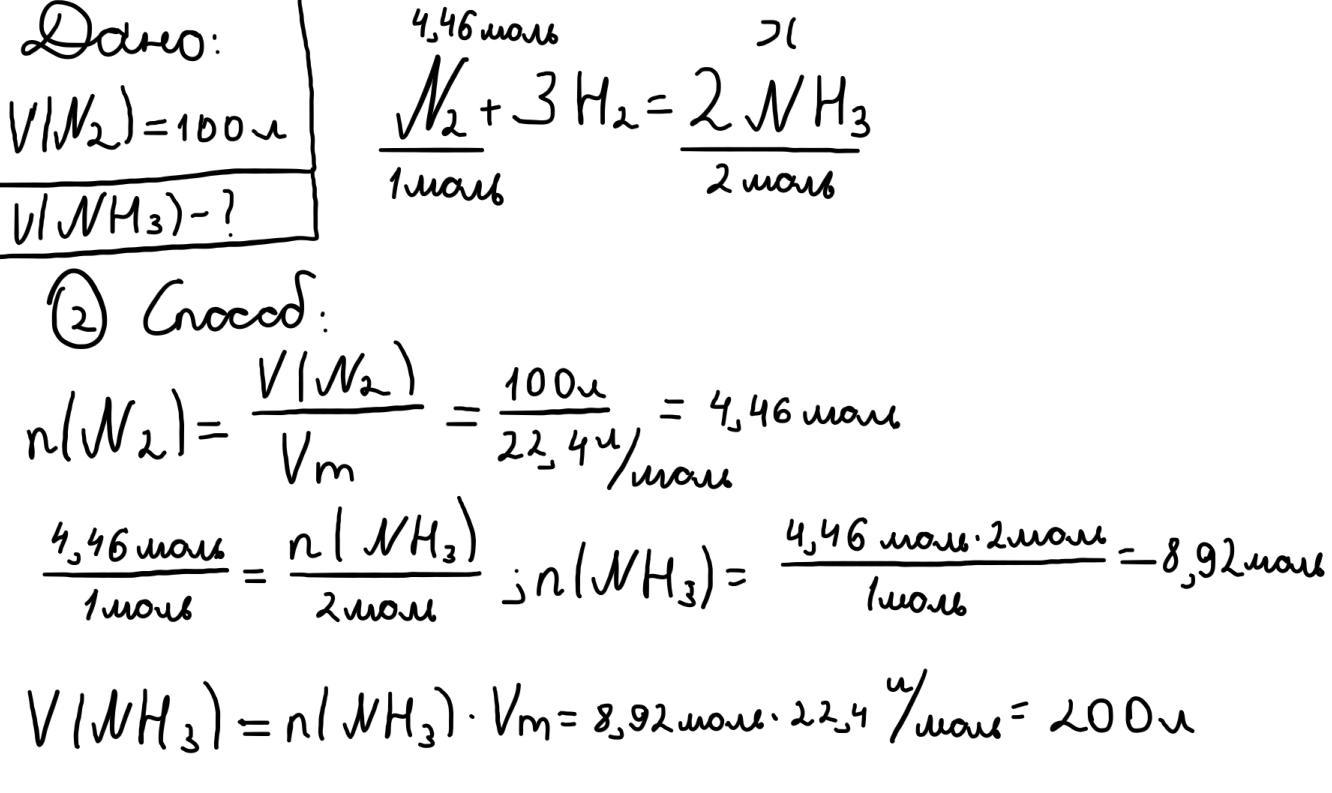 Дано:
V(N₂) = 100 л
V(NH₃) - ?
4,46 моль x
N₂ + 3H₂ = 2NH₃
1 моль 2 моль
② Способ:
n(N₂) = V(N₂)/Vm = 100 л/22,4 л/моль = 4,46 моль
4,46 моль/1 моль = n(NH₃)/2 моль ; n(NH₃) = 4,46 моль · 2 моль/1 моль = 8,92 моль
V(NH₃) = n(NH₃) · Vm = 8,92 моль · 22,4 л/моль = 200 л